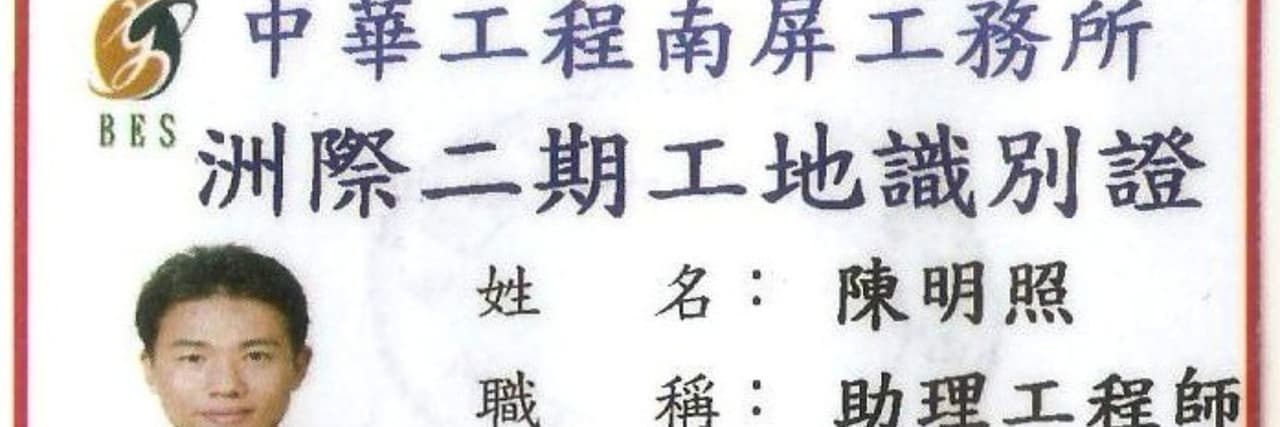 中華工程南屏工務所
BES
洲際二期工地識別證
姓名：陳明照
職稱：助理工程師